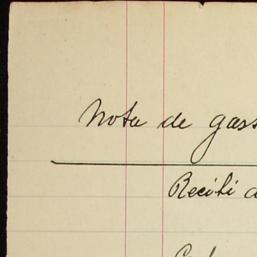 Nota de gass
Recibi d